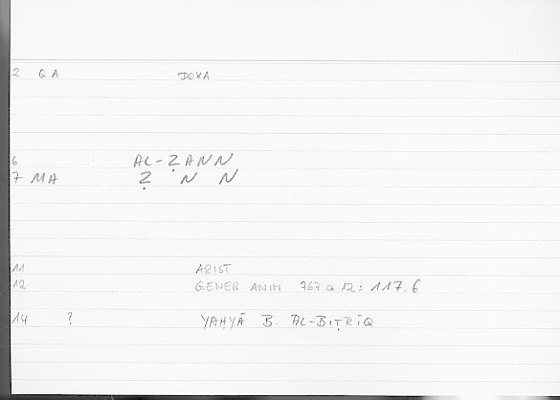 2 GA DOXA
6 AL-ẒANN
7 MA Ẓ N N
11 ARIST
12 GENER ANIM 767 a 12: 117,6
14 ? YAḤYĀ B. AL-BIṬRĪQ